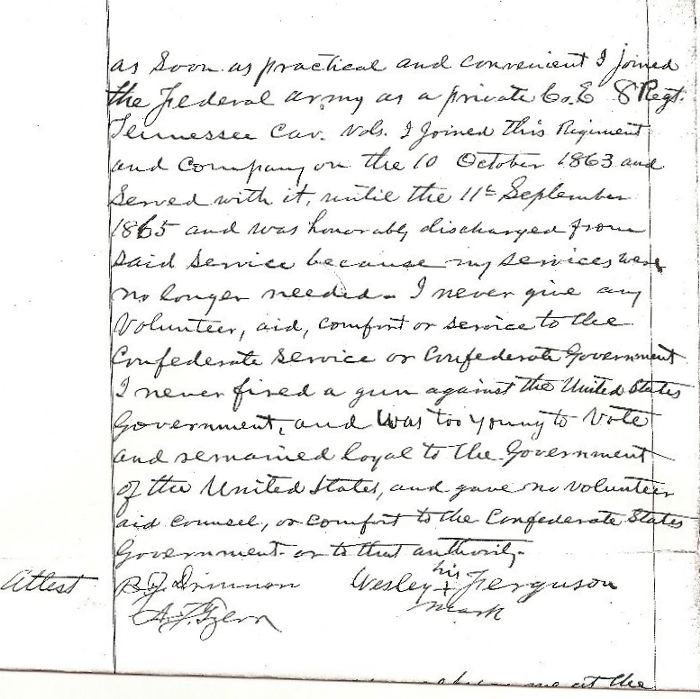 as soon as practical and convenient I joined
the Federal army as a private Co. E 8 Regt.
Tennessee Cav. Vols. I joined this Regiment
and Company on the 10 October 1863 and
Served with it, untile the 11th September
1865 and was honorably discharged from
said service because my services were
no longer needed - I never give any
Volunteer, aid, comfort or service to the
Confederate service or Confederate Government
I never fired a gun against the United States
Government, and was too young to vote
and remained loyal to the Government
of the United States, and gave no volunteer
aid counsel, or comfort to the Confederate States
Government or to that authority.
Attest B. Drinnon Wesley his + Ferguson
mark
at the